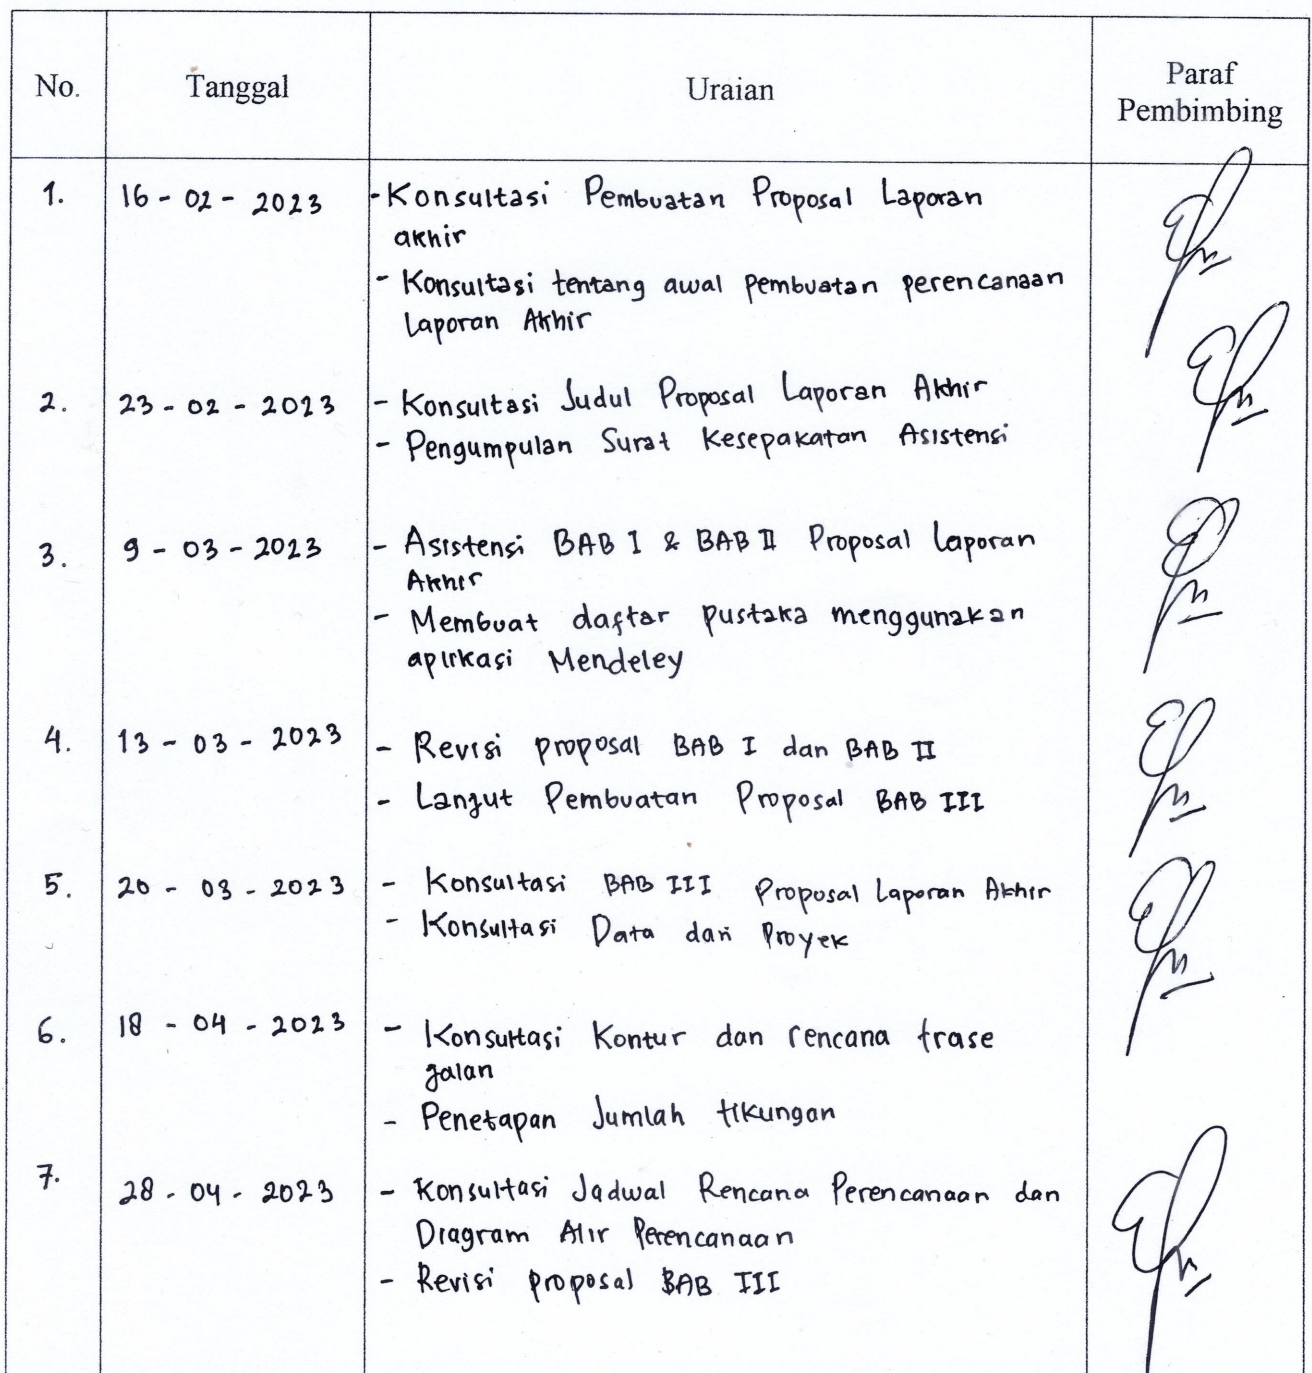 No. Tanggal Uraian Paraf
Pembimbing
1. 16 - 02 - 2023 - Konsultasi Pembuatan Proposal Laporan
akhir
- Konsultasi tentang awal pembuatan perencanaan
Laporan Akhir
2. 23 - 02 - 2023 - Konsultasi Judul Proposal Laporan Akhir
- Pengumpulan Surat Kesepakatan Asistensi
3. 9 - 03 - 2023 - Asistensi BAB I & BAB II Proposal Laporan
Akhir
- Membuat daftar pustaka menggunakan
aplikasi Mendeley
4. 13 - 03 - 2023 - Revisi proposal BAB I dan BAB II
- Lanjut Pembuatan Proposal BAB III
5. 20 - 03 - 2023 - Konsultasi BAB III Proposal Laporan Akhir
- Konsultasi Data dari Proyek
6. 18 - 04 - 2023 - Konsultasi Kontur dan rencana trase
jalan
- Penetapan Jumlah tikungan
7. 28 - 04 - 2023 - Konsultasi Jadwal Rencana Perencanaan dan
Diagram Alir Perencanaan
- Revisi proposal BAB III